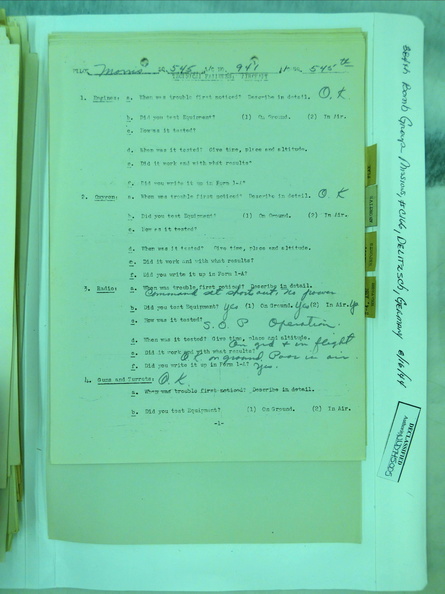 PILOT Morris 545 941 545th
1. Engines: a. When was trouble first noticed? Describe in detail. O.K
b. Did you test Equipment? (1) On Ground. (2) In Air.
c. How was it tested?
d. When was it tested? Give time, place and altitude.
e. Did it work and with what results?
f. Did you write it up in Form 1-A?
2. Oxygen: a. When was trouble first noticed? Describe in detail. O.K
b. Did you test Equipment? (1) On Ground. (2) In Air.
c. How was it tested?
d. When was it tested? Give time, place and altitude.
e. Did it work and with what results?
f. Did you write it up in Form 1-A?
3. Radio: a. When was trouble first noticed? Describe in detail.
Command set short out, no power
b. Did you test Equipment? yes (1) On Ground. Yes (2) In Air. Yes
c. How was it tested?
S.O.P Operation.
d. When was it tested? Give time, place and altitude.
On grd & in flight
e. Did it work and with what results?
O.K. on ground Poor in air
f. Did you write it up in Form 1-A? Yes.
4. Guns and Turrets: O.K.
a. When was trouble first noticed? Describe in detail.
b. Did you test Equipment? (1) On Ground. (2) In Air.
-1-
384th Bomb Group Missions, #166, Delitzsch, Germany 8/16/44
DECLASSIFIED